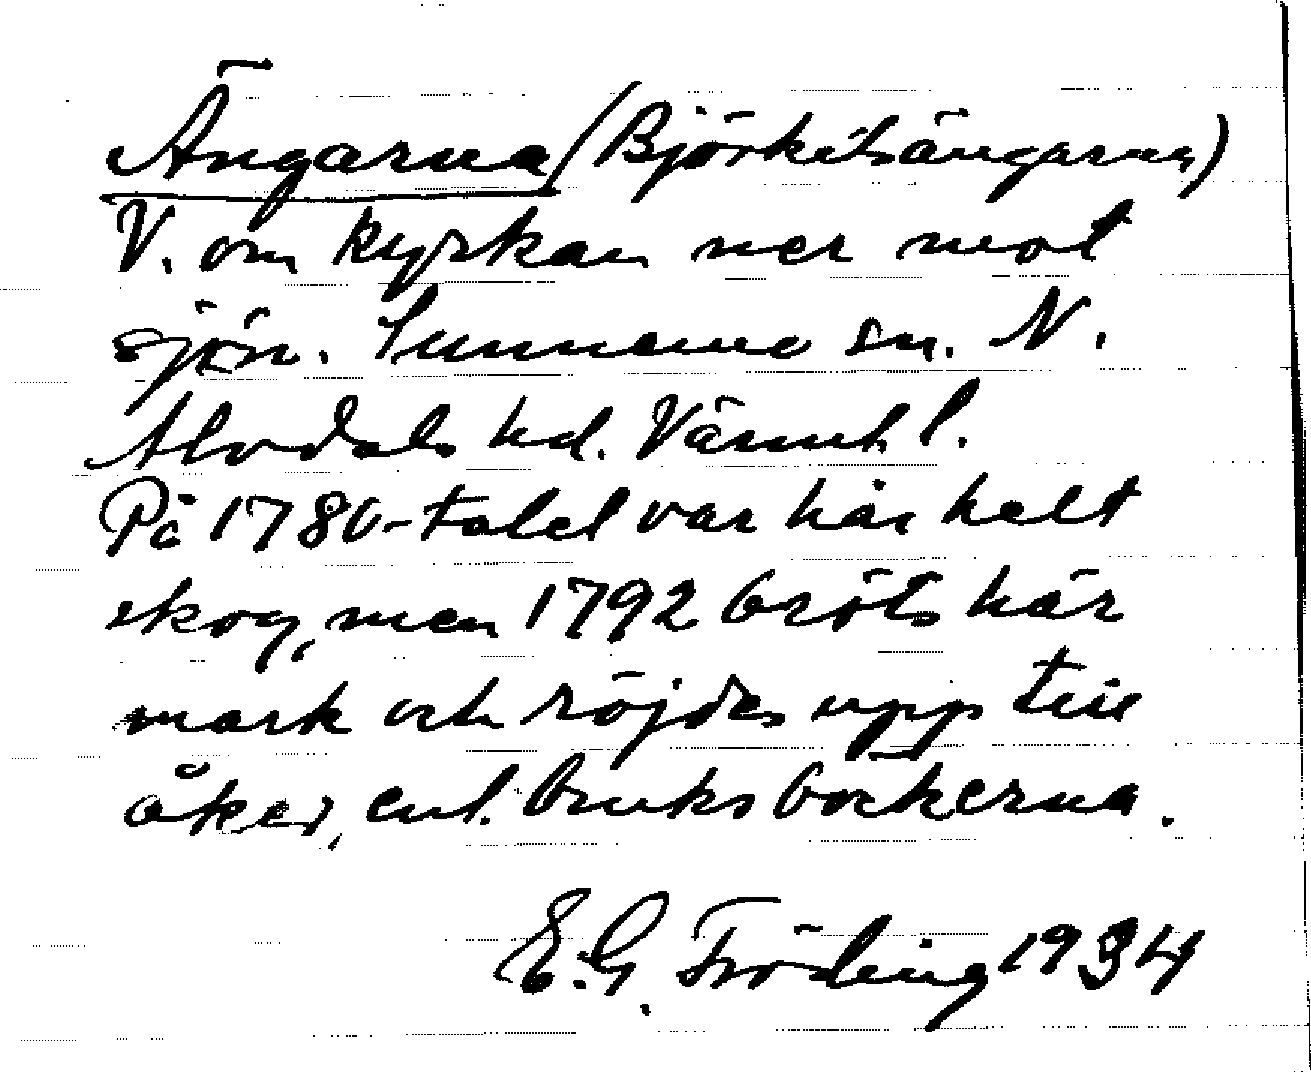 Ängarna (Björkilsängarna)
V. om kyrkan ner mot
sjön. Sunnemo sn. N.
Älvdals hd. Värml. l.
På 1780-talet var här helt
skog, men 1792 bröts här
mark och röjdes upp till
åker, enl. bruksböckerna.
E. G. Fröding 1934